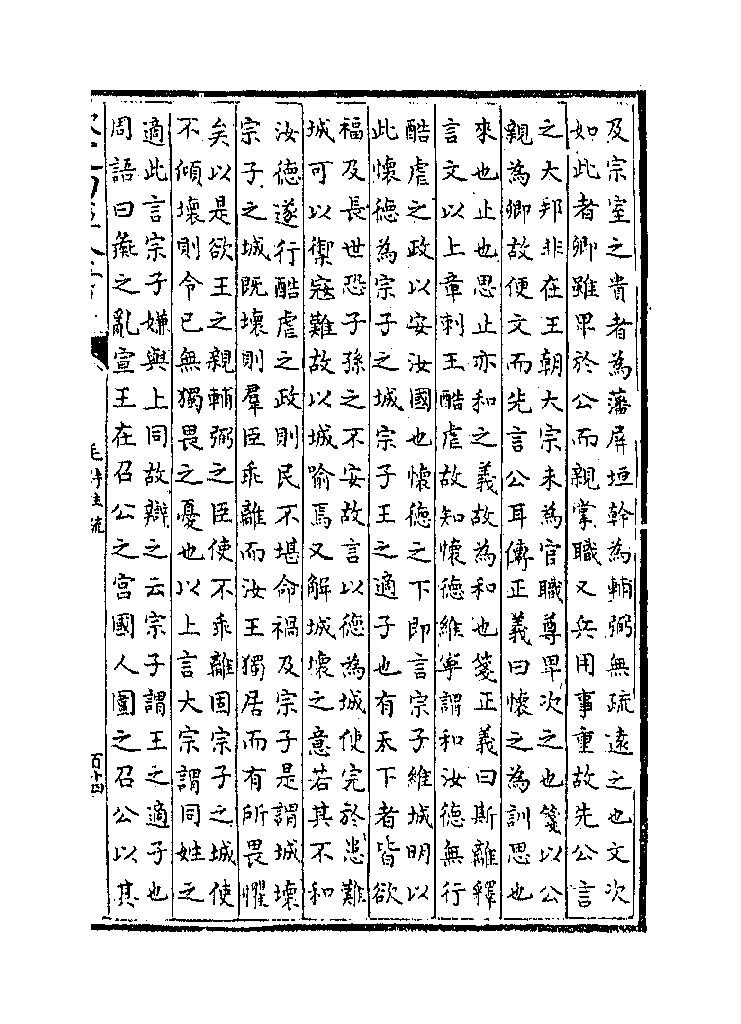 及宗室之貴者為藩屏垣幹為輔弼無疏遠之也文次
如此者卿雖卑於公而親掌職又兵用事重故先公言
之大邦非在王朝大宗未為官職尊卑次之也箋以公
親為卿故便文而先言公耳傳正義曰懷之為訓思也
來也止也思止亦和之義故為和也箋正義曰斯離釋
言文以上章刺王酷虐故知懷德維寧謂和汝德無行
酷虐之政以安汝國也懷德之下即言宗子維城明以
此懷德為宗子之城宗子王之適子也有天下者皆欲
福及長世恐子孫之不安故言以德為城使完於患難
城可以禦寇難故以城喻焉又解城壞之意若其不和
汝德遂行酷虐之政則民不堪命禍及宗子是謂城壞
宗子之城既壞則羣臣乖離而汝王獨居而有所畏懼
矣以是欲王之親輔弼之臣使不乖離固宗子之城使
不傾壞則令已無獨畏之憂也以上言大宗謂同姓之
適此言宗子嫌與上同故辯之云宗子謂王之適子也
周語曰彘之亂宣王在召公之宮國人圍之召公以其
毛詩注疏
百十四